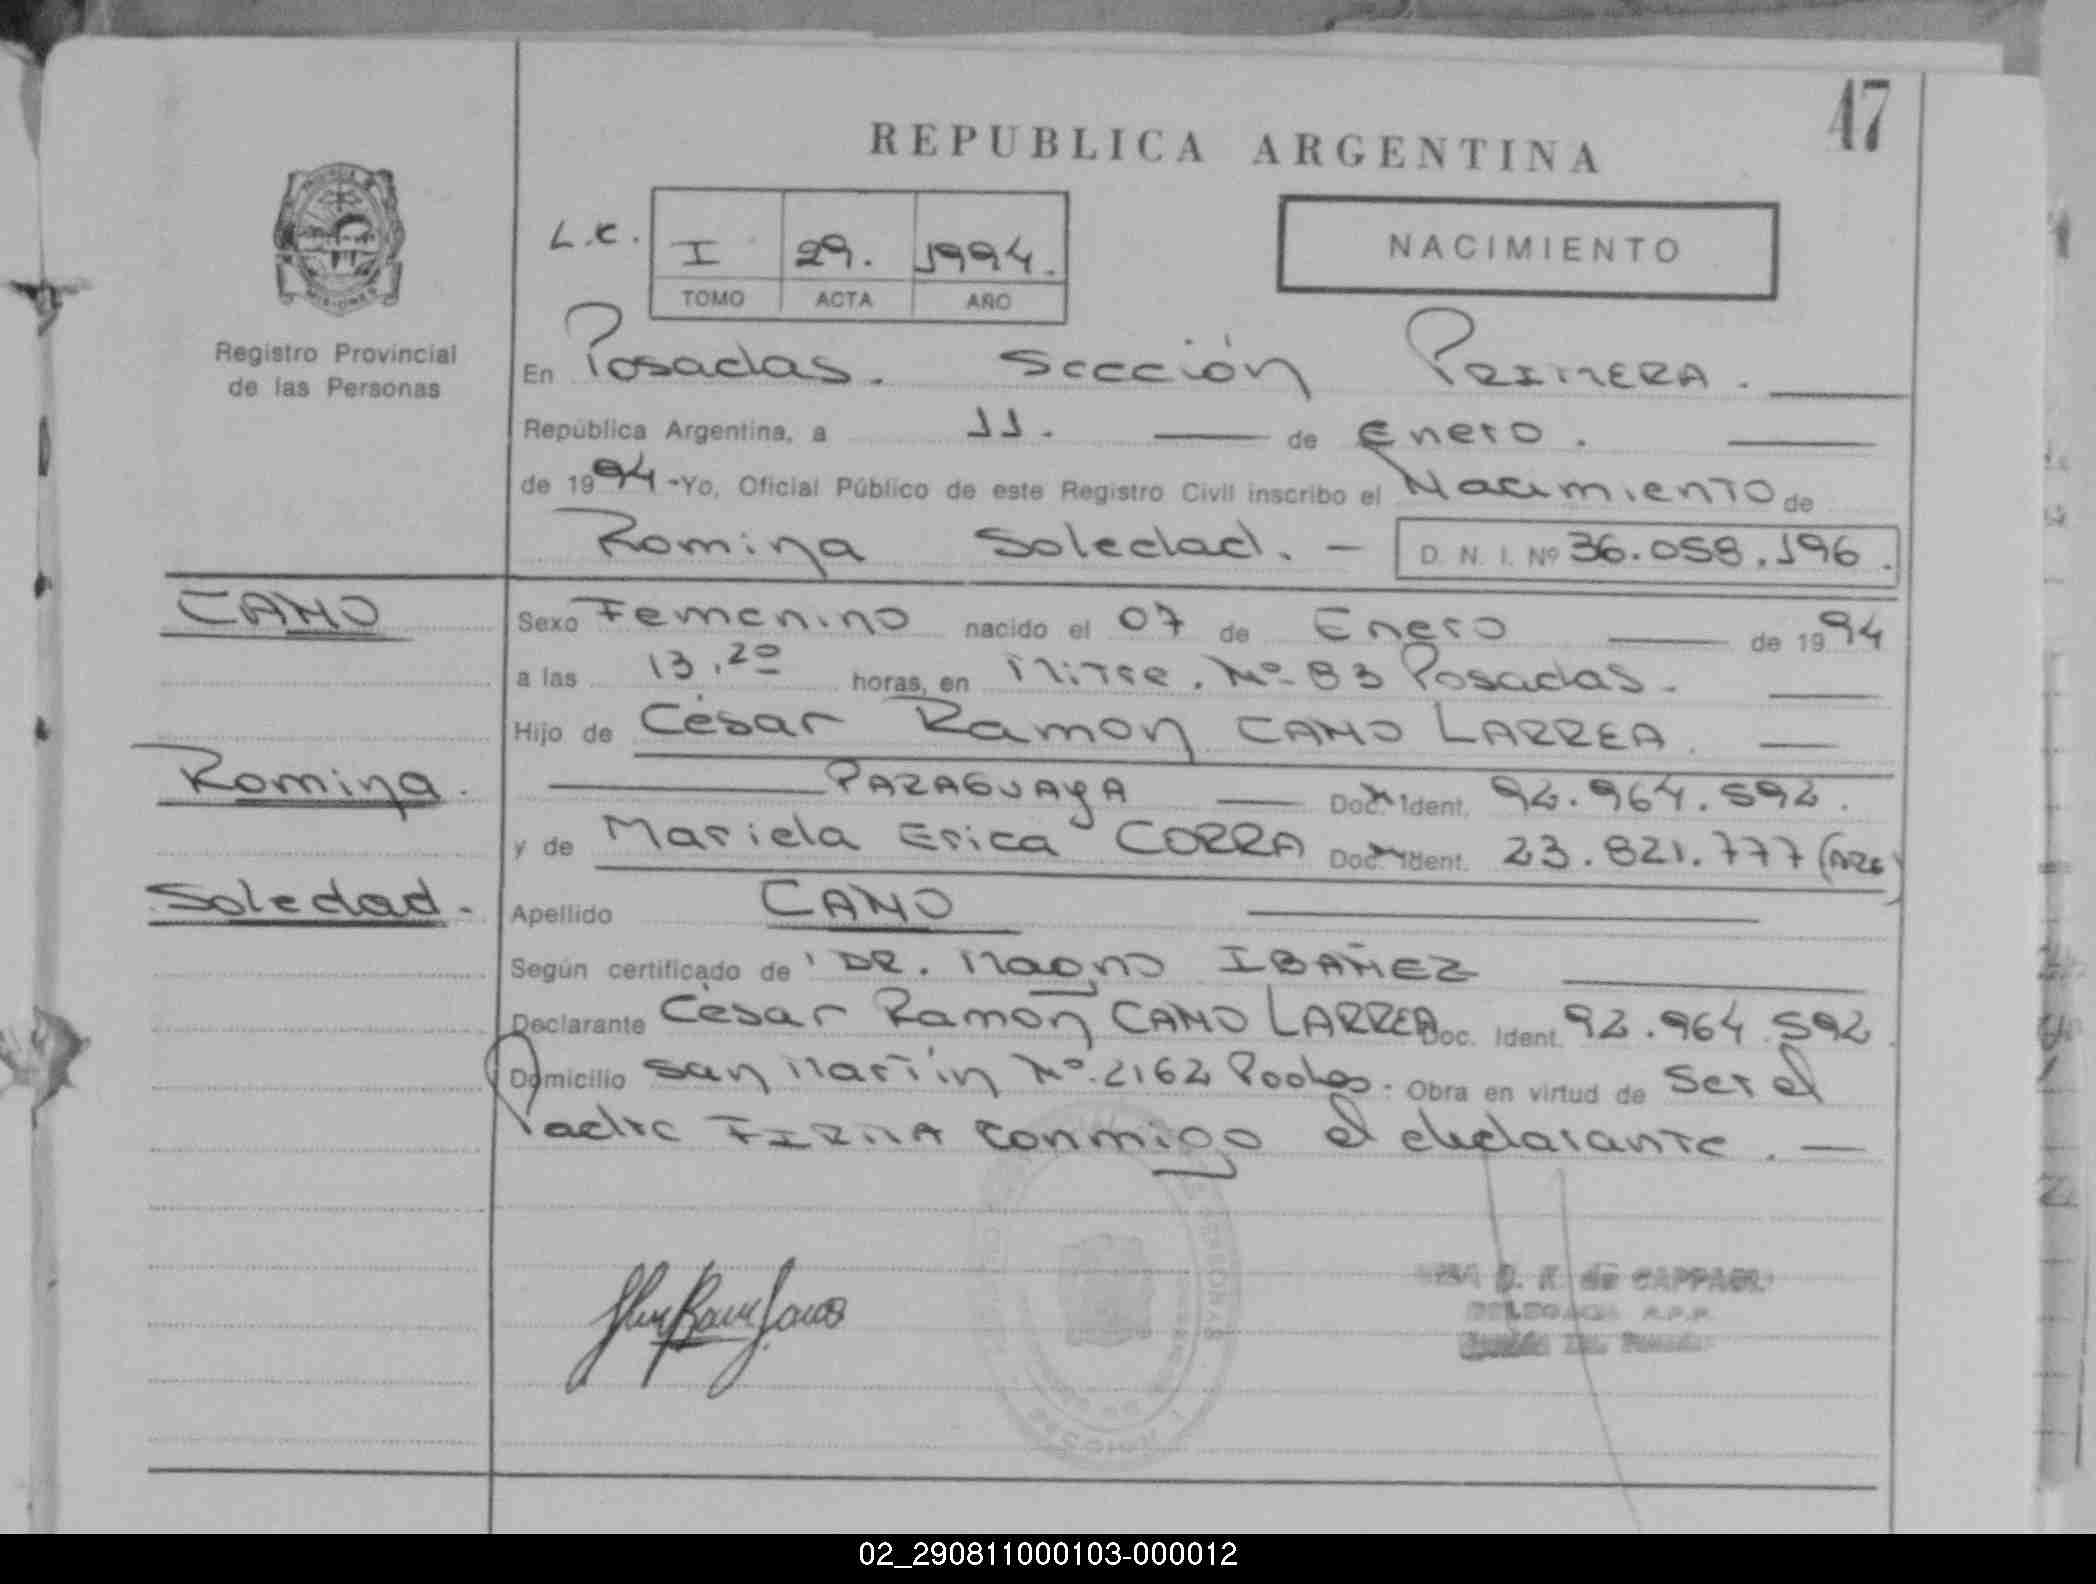 47
REPUBLICA ARGENTINA
L.C.
I 29. 1994.
TOMO ACTA AÑO
NACIMIENTO
Registro Provincial
de las Personas
En Posadas. Sección Primera.
República Argentina, a 11. de Enero.
de 1994 - Yo, Oficial Público de este Registro Civil inscribo el Nacimiento de
Romina Soledad. — D. N. I. Nº 36.058.196.
CANO
Sexo Femenino nacido el 07 de Enero de 1994
a las 13,20 horas, en Mitre. Nº 83 Posadas.
Hijo de César Ramon CANO LARREA
Romina.
PARAGUAYA Doc. Ident. 92.964.592.
y de Mariela Erica CORRA Doc. Ident. 23.821.777 (ARG)
Soledad.
Apellido CANO
Según certificado de DR. Magno IBAÑEZ
Declarante César Ramon CANO LARREA Doc. Ident. 92.964.592
Domicilio San Martin Nº 2162 Posadas. Obra en virtud de Ser el
Padre FIRMA conmigo el declarante. —
D. K. de CAPPAGLI
DELEGADA R.P.P.
02_290811000103-000012